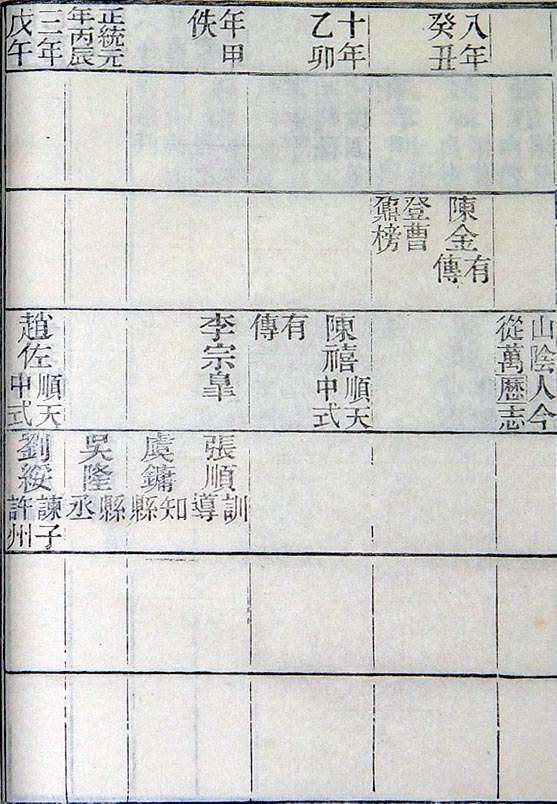 八年
癸丑
十年
乙卯
年甲
佚
正統元
年丙辰
三年
戊午
陳金
有
傳
登曹
鼐榜
山陰人今
從萬歷志
陳禧
順天
中式
有
傳
李宗臯
趙佐
順天
中式
張順
訓
導
虞鏞
知
縣
吳隆
縣
丞
劉綏
諫子
許州